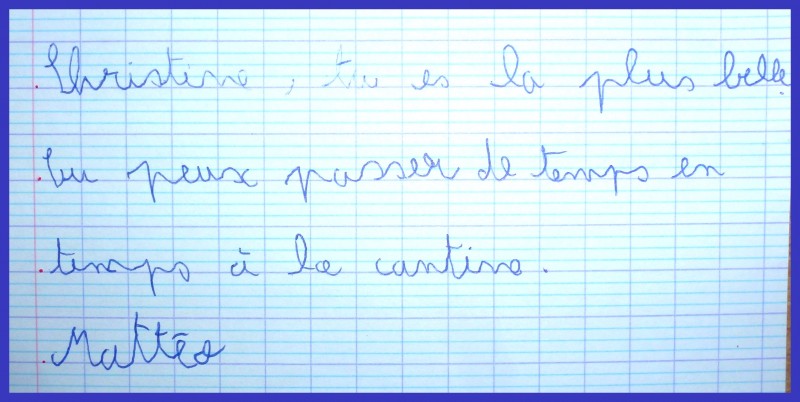 Christine, tu es la plus belle.
Tu peux passer de temps en
temps à la cantine.
Mattéo